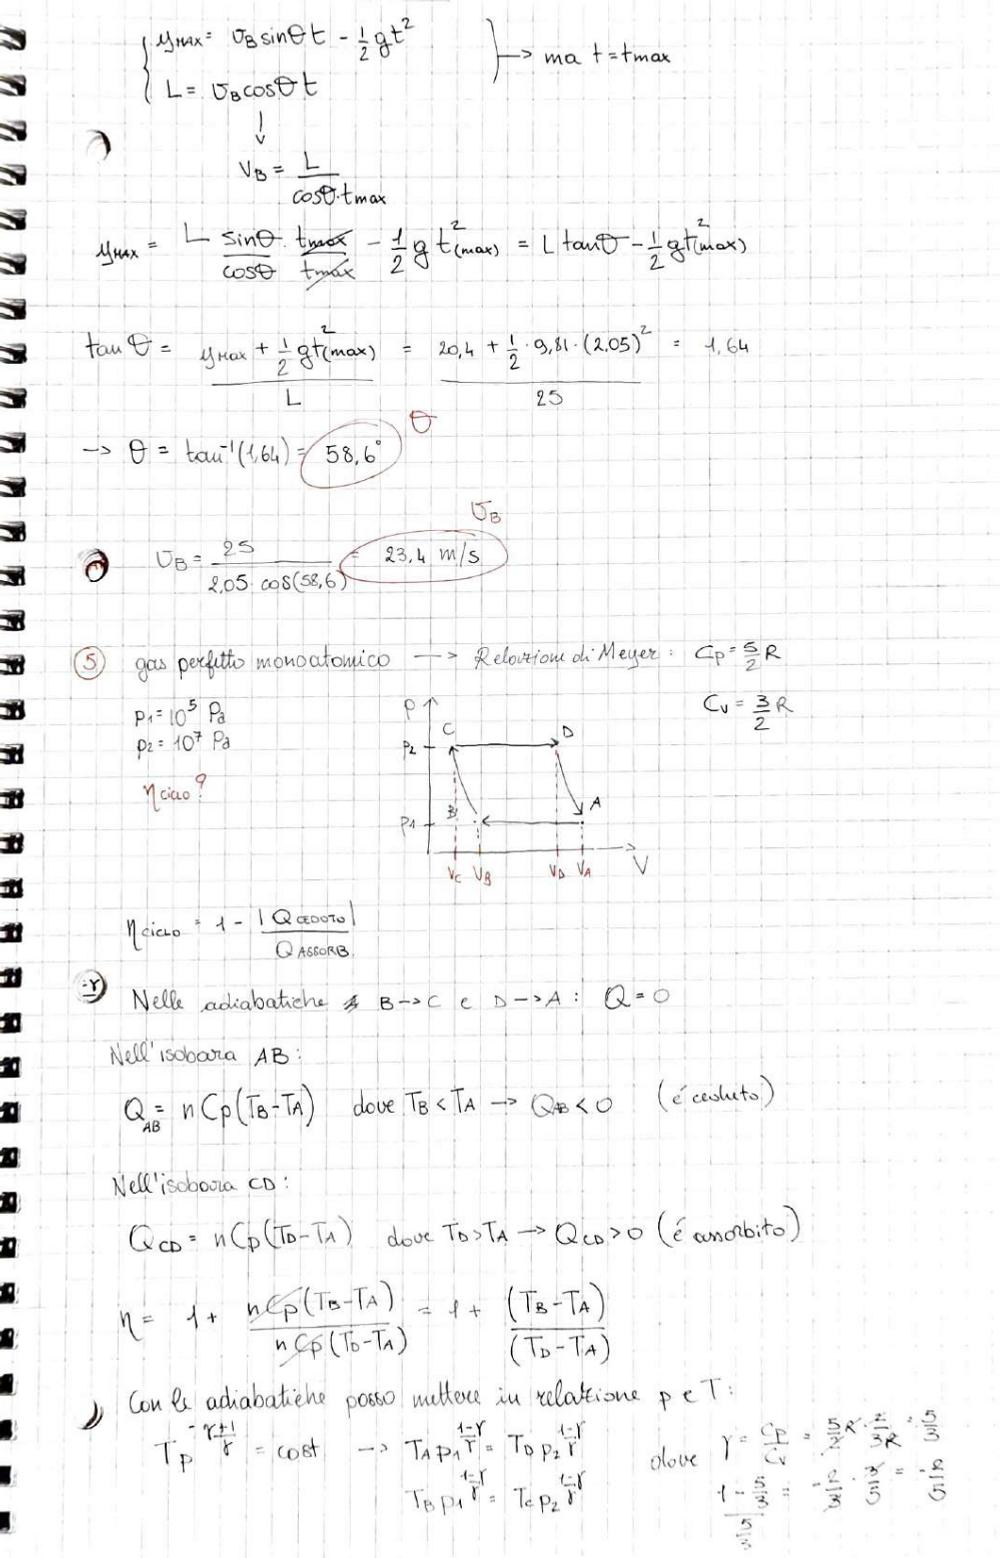 y_MAX = v_B sinθ t - 1/2 g t² } → ma t = tmax
L = v_B cosθ t
↓
v_B = L / (cosθ · tmax)
y_MAX = L sinθ/cosθ · tmax/tmax - 1/2 g t²(max) = L tanθ - 1/2 g t²(max)
tan θ = (y_MAX + 1/2 g t²(max)) / L = (20,4 + 1/2 · 9,81 · (2,05)²) / 25 = 1,64
→ θ = tan⁻¹(1,64) = 58,6° θ
v_B = 25 / (2,05 · cos(58,6)) = 23,4 m/s v_B
5 gas perfetto monoatomico → Relazione di Meyer: Cp = 5/2 R
Cv = 3/2 R
p1 = 10⁵ Pa
p2 = 10⁷ Pa
η ciclo?
p
C D
p2
B A
p1
Vc VB VD VA V
η ciclo = 1 - |Q CEDOTO| / Q ASSORB.
Nelle adiabatiche B → C e D → A: Q = 0
Nell'isobara AB:
Q_AB = n Cp (TB - TA) dove TB < TA → QAB < 0 (é ceduto)
Nell'isobara CD:
QCD = n Cp (TD - TA) dove TD > TA → QCD > 0 (é assorbito)
η = 1 + nCp (TB - TA) / nCp (TD - TA) = 1 + (TB - TA) / (TD - TA)
Con le adiabatiche posso mettere in relazione p e T:
T p^(-γ+1)/γ = cost → TA p1^(1-γ)/γ = TD p2^(1-γ)/γ dove γ = Cp/Cv = 5/2 R · 2/3R = 5/3
TB p1^(1-γ)/γ = Tc p2^(1-γ)/γ (1 - 5/3) / (5/3) = -2/3 · 3/5 = -2/5